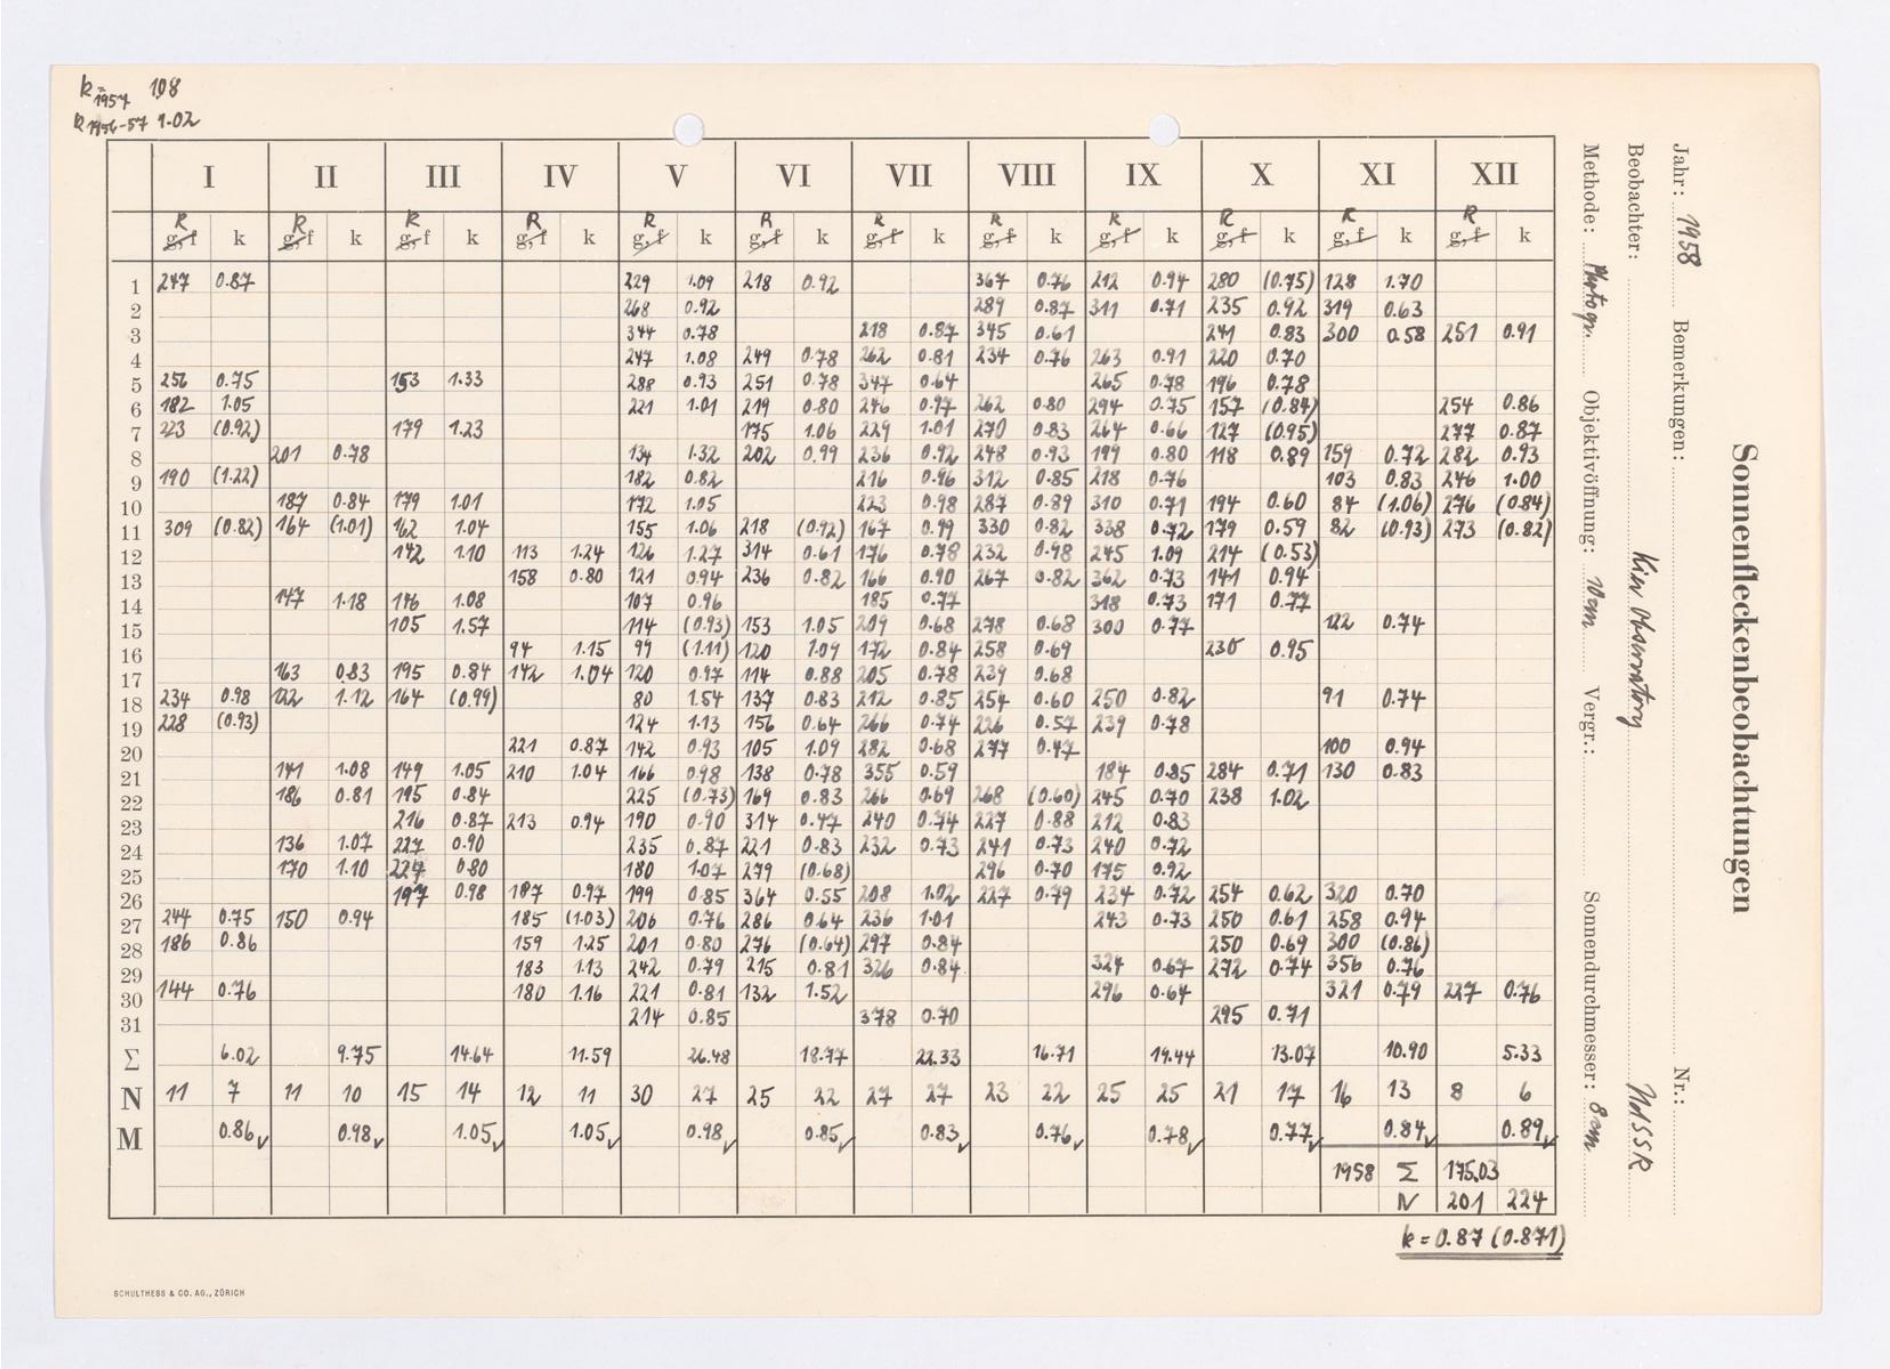 k = 1957 1.08
k 1956-57 1.02
I II III IV V VI VII VIII IX X XI XII
R R R R R R R R R R R R
g, f k g, f k g, f k g, f k g, f k g, f k g, f k g, f k g, f k g, f k g, f k g, f k
1 247 0.87 229 1.09 218 0.92 367 0.76 212 0.94 280 (0.75) 128 1.70
2 268 0.92 289 0.87 311 0.71 235 0.92 319 0.63
3 344 0.78 218 0.87 345 0.61 241 0.83 300 0.58 251 0.91
4 247 1.08 249 0.78 262 0.81 234 0.76 263 0.91 220 0.70
5 256 0.75 153 1.33 288 0.93 251 0.78 347 0.64 265 0.78 196 0.78
6 182 1.05 221 1.01 219 0.80 246 0.97 262 0.80 294 0.75 157 (0.84) 254 0.86
7 223 (0.92) 179 1.23 175 1.06 229 1.01 270 0.83 264 0.66 127 (0.95) 277 0.87
8 201 0.78 134 1.32 202 0.99 236 0.92 248 0.93 199 0.80 118 0.89 159 0.72 282 0.93
9 190 (1.22) 182 0.82 216 0.96 312 0.85 218 0.76 103 0.83 246 1.00
10 187 0.84 179 1.01 172 1.05 223 0.98 287 0.89 310 0.71 194 0.60 84 (1.06) 276 (0.84)
11 309 (0.82) 164 (1.01) 162 1.04 155 1.06 218 (0.92) 167 0.99 330 0.82 338 0.72 179 0.59 82 (0.93) 273 (0.82)
12 142 1.10 113 1.24 126 1.27 314 0.61 176 0.78 232 0.98 245 1.09 214 (0.53)
13 158 0.80 121 0.94 236 0.82 166 0.90 267 0.82 362 0.73 141 0.94
14 147 1.18 146 1.08 107 0.96 185 0.77 318 0.73 171 0.77
15 105 1.57 114 (0.93) 153 1.05 209 0.68 278 0.68 300 0.77 122 0.74
16 94 1.15 99 (1.11) 120 1.09 172 0.84 258 0.69 230 0.95
17 163 0.83 195 0.84 142 1.04 120 0.97 114 0.88 205 0.78 239 0.68
18 234 0.98 122 1.12 164 (0.99) 80 1.54 137 0.83 212 0.85 254 0.60 250 0.82 91 0.74
19 228 (0.93) 124 1.13 156 0.64 266 0.74 226 0.57 239 0.78
20 221 0.87 142 0.93 105 1.09 282 0.68 277 0.47 100 0.94
21 141 1.08 149 1.05 210 1.04 166 0.98 138 0.78 355 0.59 184 0.85 284 0.71 130 0.83
22 186 0.81 195 0.84 225 (0.73) 169 0.83 266 0.69 268 (0.60) 245 0.70 238 1.02
23 216 0.87 213 0.94 190 0.90 314 0.47 240 0.74 227 0.88 212 0.83
24 136 1.07 227 0.90 235 0.87 221 0.83 232 0.73 241 0.73 240 0.72
25 170 1.10 227 0.80 180 1.07 279 (0.68) 296 0.70 175 0.92
26 197 0.98 187 0.97 199 0.85 364 0.55 208 1.02 227 0.79 234 0.72 254 0.62 320 0.70
27 244 0.75 150 0.94 185 (1.03) 206 0.76 286 0.64 236 1.01 243 0.73 250 0.61 258 0.94
28 186 0.86 159 1.25 201 0.80 276 (0.64) 297 0.84 250 0.69 300 (0.86)
29 183 1.13 242 0.79 215 0.81 326 0.84 324 0.67 272 0.74 356 0.76
30 144 0.76 180 1.16 221 0.81 132 1.52 296 0.64 321 0.79 227 0.76
31 214 0.85 378 0.70 295 0.71
Σ 6.02 9.75 14.64 11.59 26.48 18.77 22.33 16.71 19.44 13.07 10.90 5.33
N 11 7 11 10 15 14 12 11 30 27 25 22 27 27 23 22 25 25 21 17 16 13 8 6
M 0.86✓ 0.98✓ 1.05✓ 1.05✓ 0.98✓ 0.85✓ 0.83✓ 0.76✓ 0.78✓ 0.77✓ 0.84✓ 0.89✓
1958 Σ 175.03
N 201 224
k = 0.87 (0.871)
SCHULTHESS & CO. AG., ZÜRICH
Sonnenfleckenbeobachtungen
Jahr: 1958 Bemerkungen: Nr.:
Beobachter: Kiew Observatory UdSSR
Methode: Photogr. Objektivöffnung: 10 cm Vergr.: Sonnendurchmesser: 8 cm